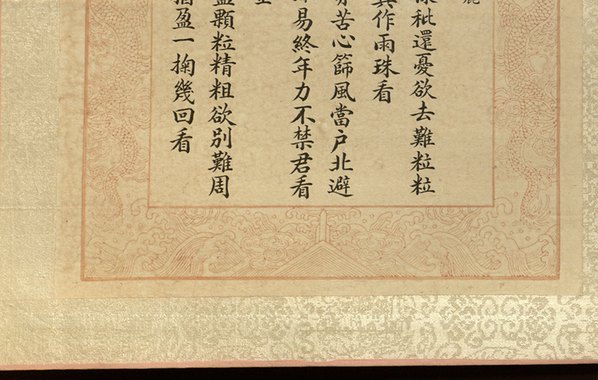 秕還憂欲去難粒粒
作雨珠看
苦心篩風當户北避
易終年力不禁君看
顆粒精粗欲別難周
盈一掬幾回看